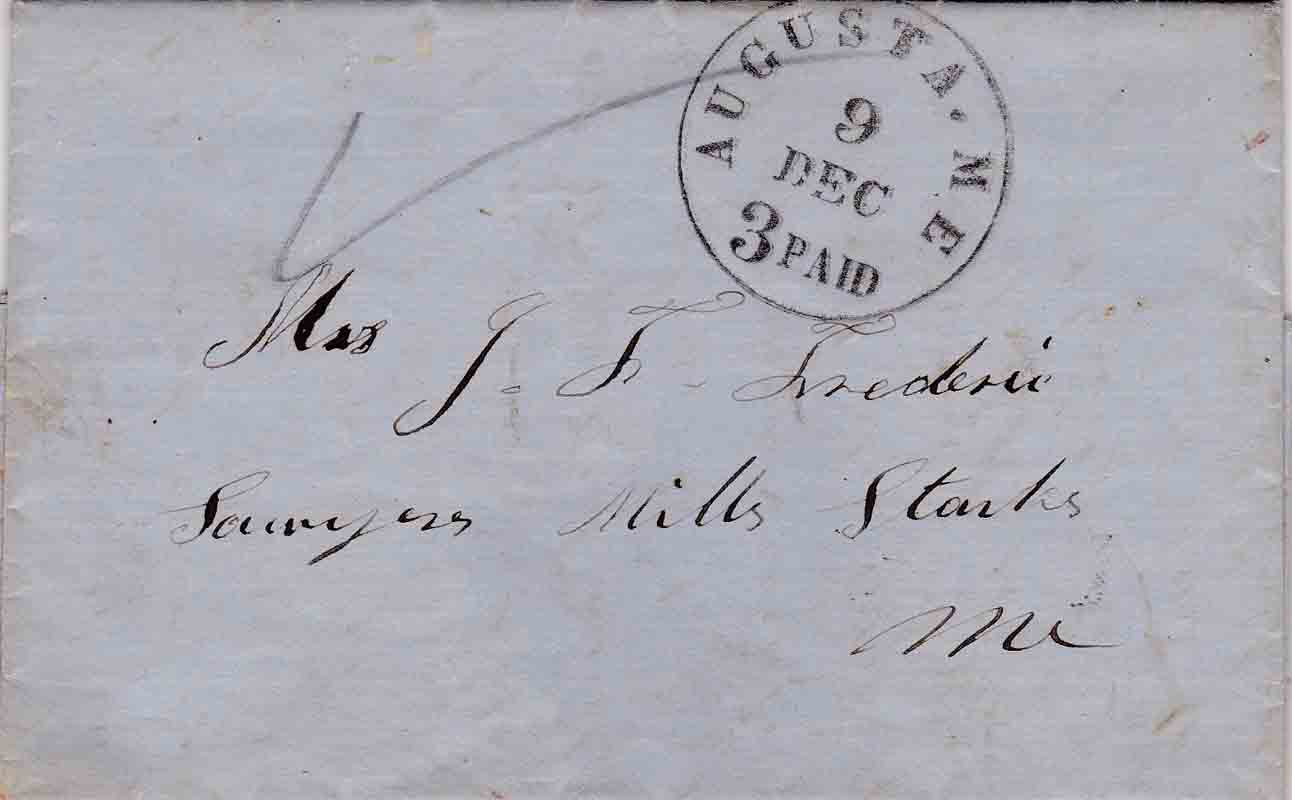 AUGUSTA. ME
9
DEC
3 PAID
Mrs J. F. Frederic
Sawyers Mills Starks
Me